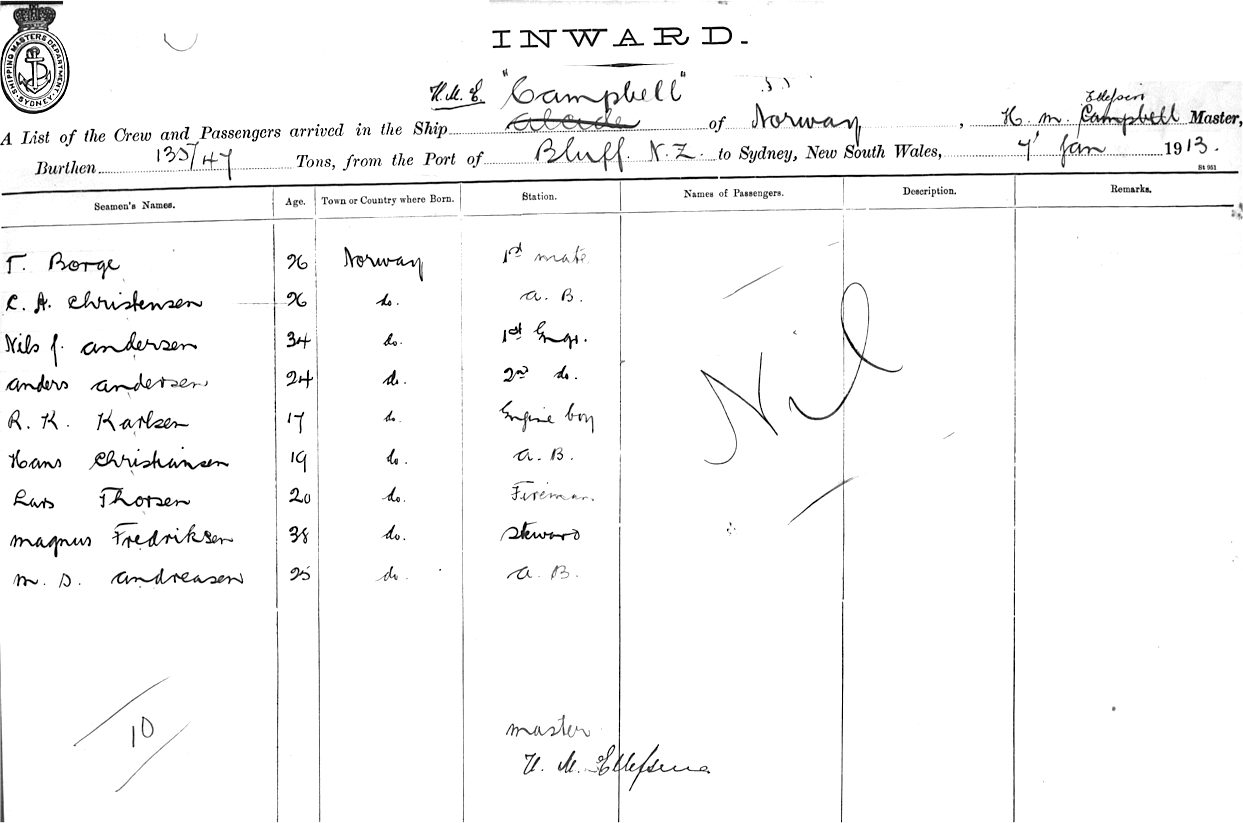 SHIPPING MASTERS DEPARTMENT. SYDNEY.
INWARD.
H.M.E. "Campbell"
Ellefsen
A List of the Crew and Passengers arrived in the Ship of Norway, H. M. Campbell Master,
Burthen 135/47 Tons, from the Port of Bluff. N.Z. to Sydney, New South Wales, 7 Jan 1913.
St 951
Seamen's Names. Age. Town or Country where Born. Station. Names of Passengers. Description. Remarks.
T. Borge 26 Norway 1st mate
C. A. Christensen 26 do. A. B.
Nils J. Andersen 34 do. 1st Engr.
Anders Andersen 24 do. 2nd do.
R. K. Karlsen 17 do. Engine boy
Hans Christiansen 19 do. A. B.
Lars Thorsen 20 do. Fireman
Magnus Fredriksen 38 do. Steward
M. D. Andreasen 25 do. A. B.
Nil
10
Master
H. M. Ellefsen